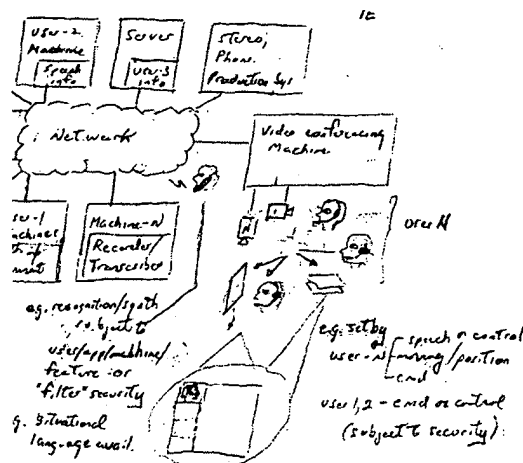 User-2
Machine
Speech
info
Server
User-3
info
Stereo,
Phone
Production Sys
Network
Video conferencing
Machine
User N
User-1
Machines
Machine-N
Recorder/
Transcriber
e.g. recognition/synth
subject to
user/app/machine/
feature or
"filter" security
g. situational
language avail.
e.g. set by
user-N
speech or control
moving/position
cmd
user 1,2 - cmd or control
(subject to security)